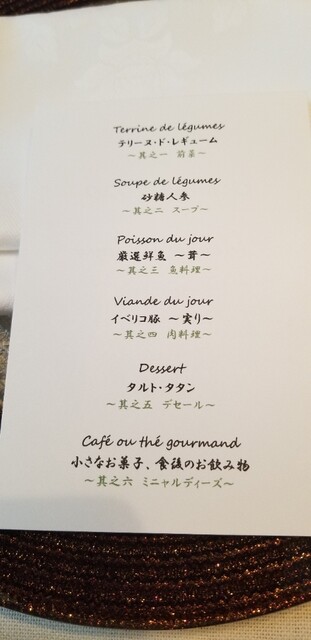 Terrine de légumes
テリーヌ・ド・レギューム
～其之一 前菜～
Soupe de légumes
砂糖人参
～其之二 スープ～
Poisson du jour
厳選鮮魚 ～茸～
～其之三 魚料理～
Viande du jour
イベリコ豚 ～実り～
～其之四 肉料理～
Dessert
タルト・タタン
～其之五 デセール～
Café ou thé gourmand
小さなお菓子、食後のお飲み物
～其之六 ミニャルディーズ～